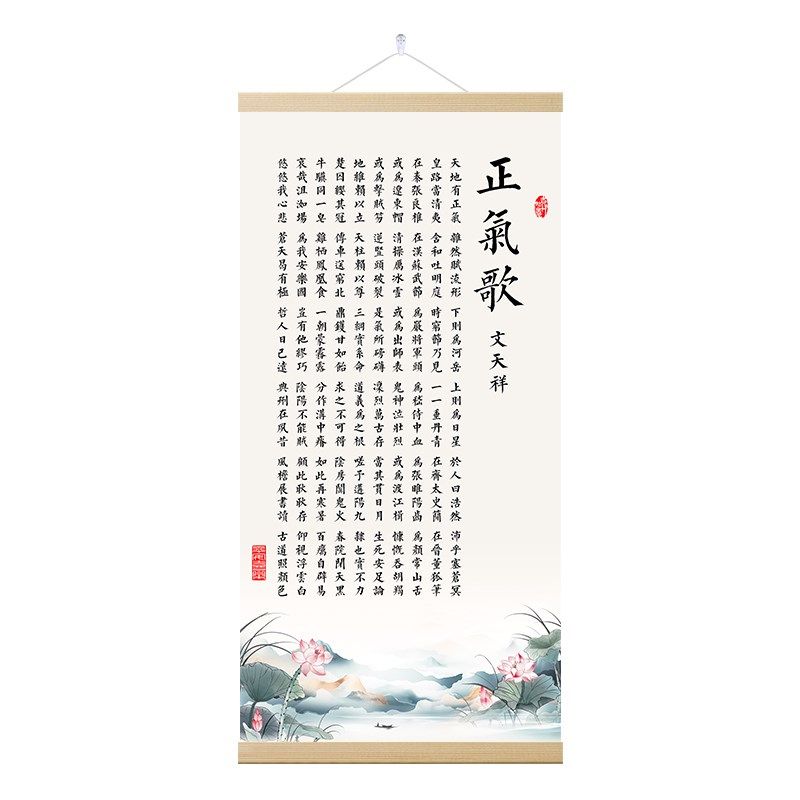 正氣歌
文天祥
天地有正氣 雜然賦流形 下則爲河岳 上則爲日星 於人曰浩然 沛乎塞蒼冥
皇路當清夷 含和吐明庭 時窮節乃見 一一垂丹青 在齊太史簡 在晉董狐筆
在秦張良椎 在漢蘇武節 爲嚴將軍頭 爲嵇侍中血 爲張睢陽齒 爲顏常山舌
或爲遼東帽 清操厲冰雪 或爲出師表 鬼神泣壯烈 或爲渡江楫 慷慨吞胡羯
或爲擊賊笏 逆豎頭破裂 是氣所磅礴 凜烈萬古存 當其貫日月 生死安足論
地維賴以立 天柱賴以尊 三綱實系命 道義爲之根 嗟予遘陽九 隸也實不力
楚囚纓其冠 傳車送窮北 鼎鑊甘如飴 求之不可得 陰房闃鬼火 春院閉天黑
牛驥同一皂 雞栖鳳凰食 一朝蒙霧露 分作溝中瘠 如此再寒暑 百癘自辟易
哀哉沮洳場 爲我安樂國 豈有他繆巧 陰陽不能賊 顧此耿耿存 仰視浮雲白
悠悠我心悲 蒼天曷有極 哲人日已遠 典刑在夙昔 風檐展書讀 古道照顏色